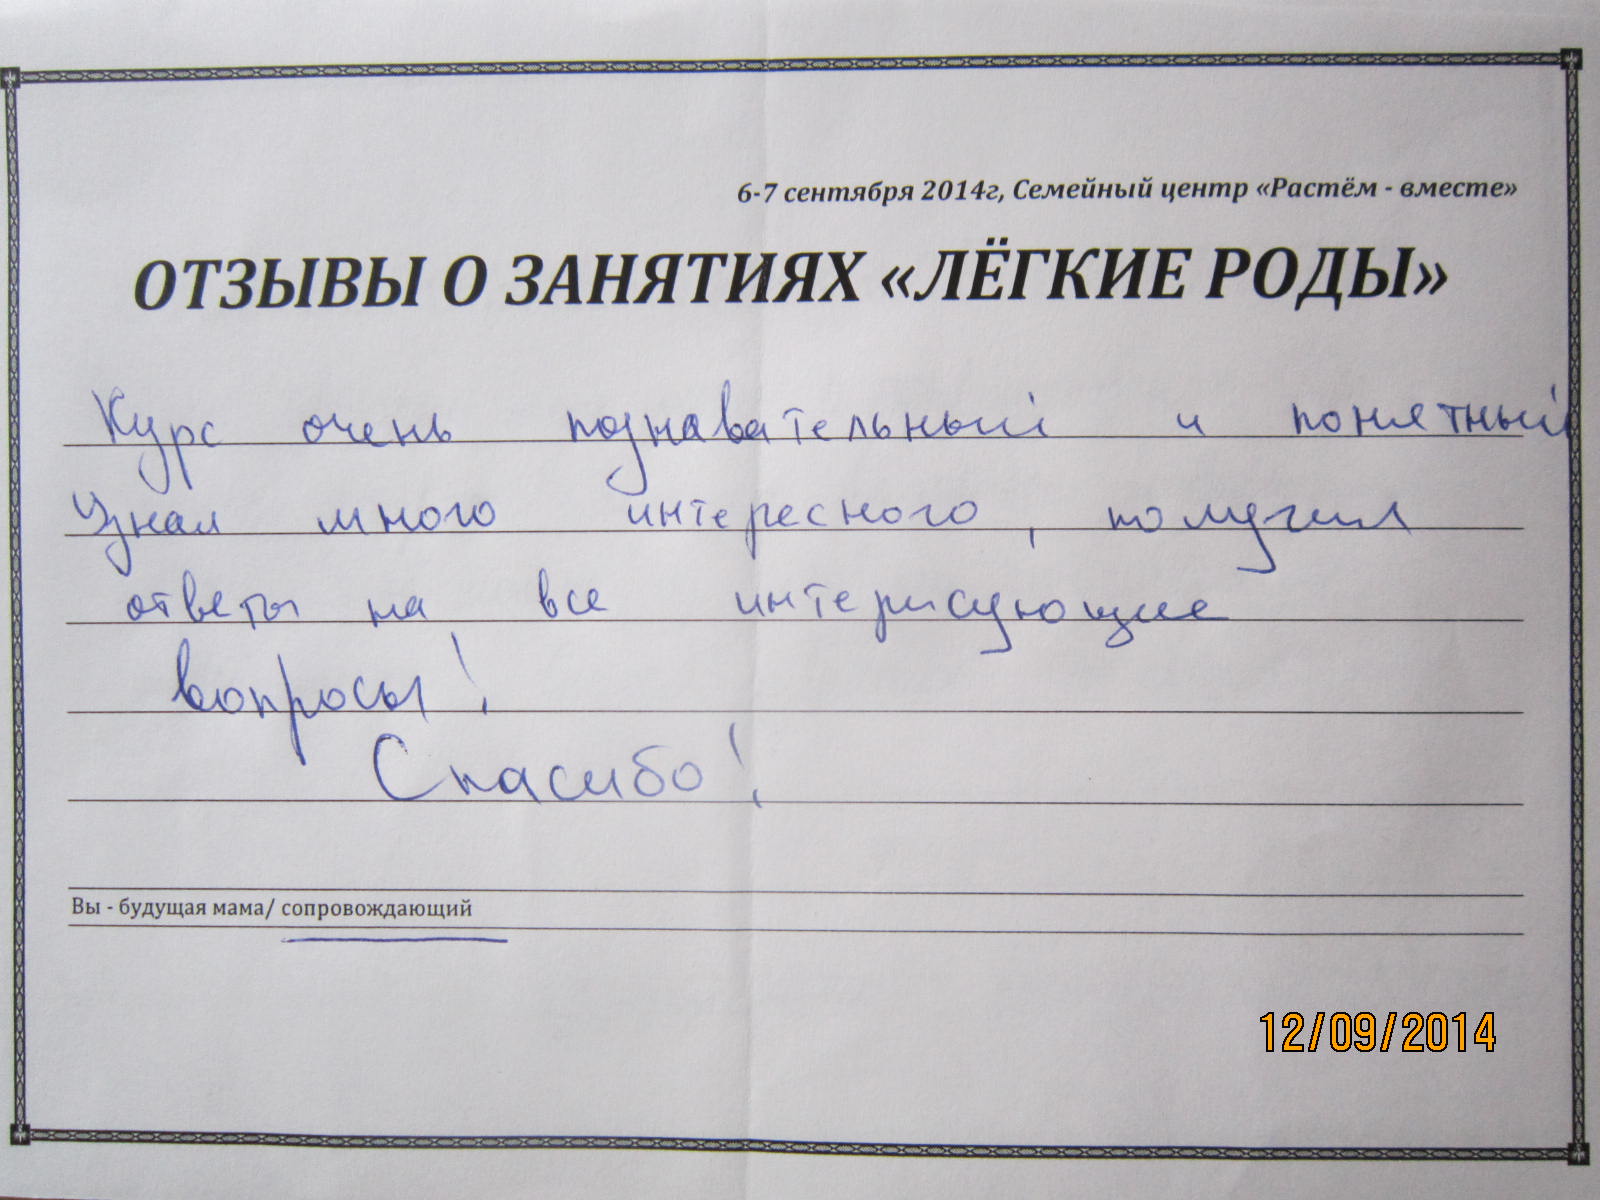 6-7 сентября 2014г, Семейный центр «Растём - вместе»
ОТЗЫВЫ О ЗАНЯТИЯХ «ЛЁГКИЕ РОДЫ»
Курс очень познавательный и понятный
Узнал много интересного, получил
ответы на все интерисующие
вопросы!
Спасибо!
Вы - будущая мама/ сопровождающий
12/09/2014